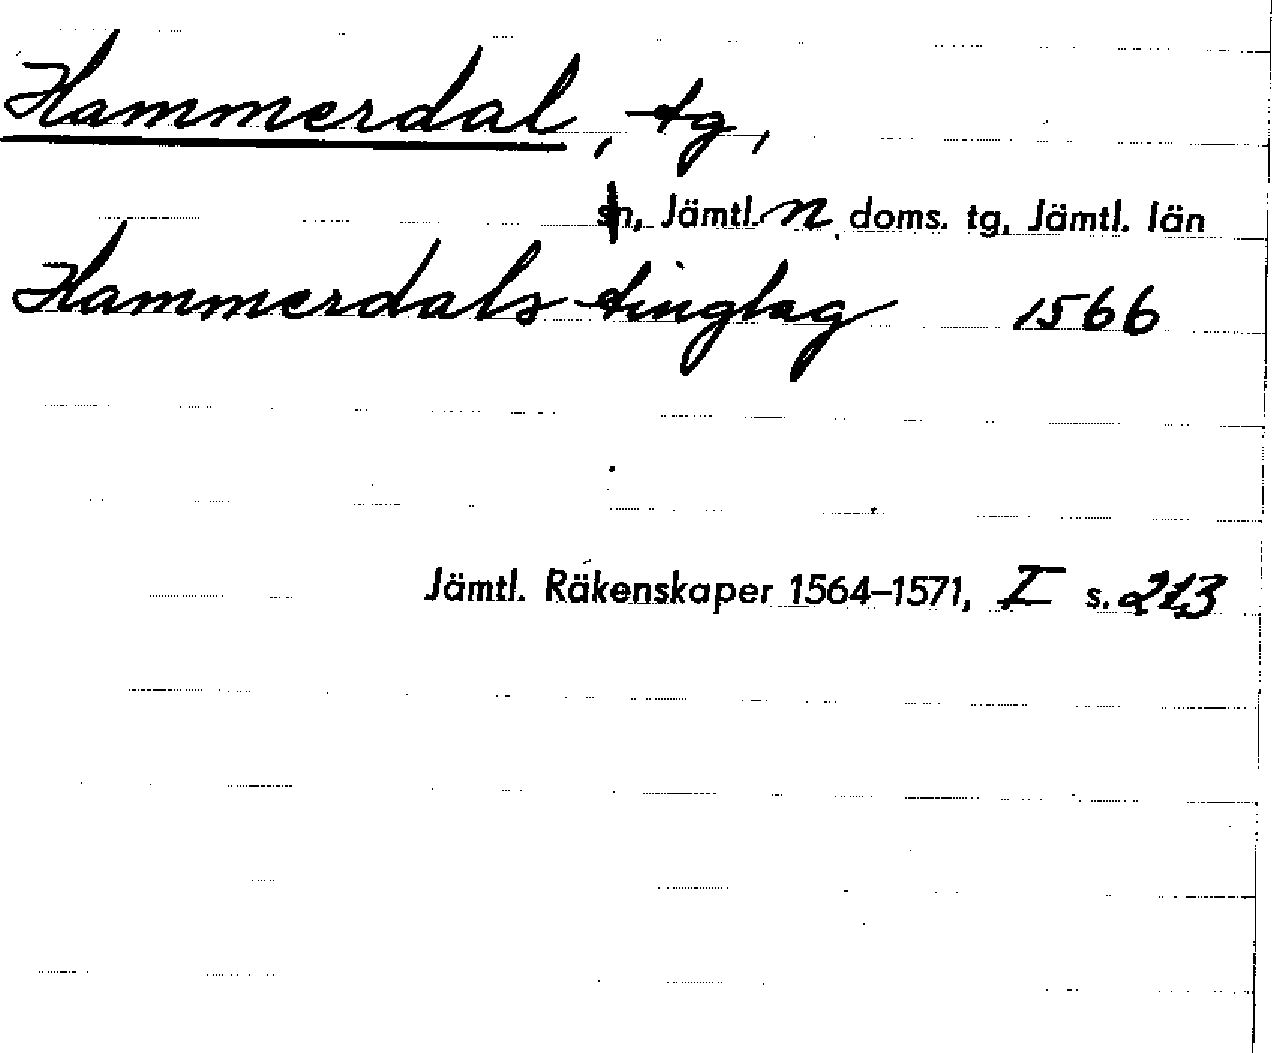 Hammerdal, tg,
sn, Jämtl. n doms. tg, Jämtl. län
Hammerdals tinglag 1566
Jämtl. Räkenskaper 1564–1571, I s. 213